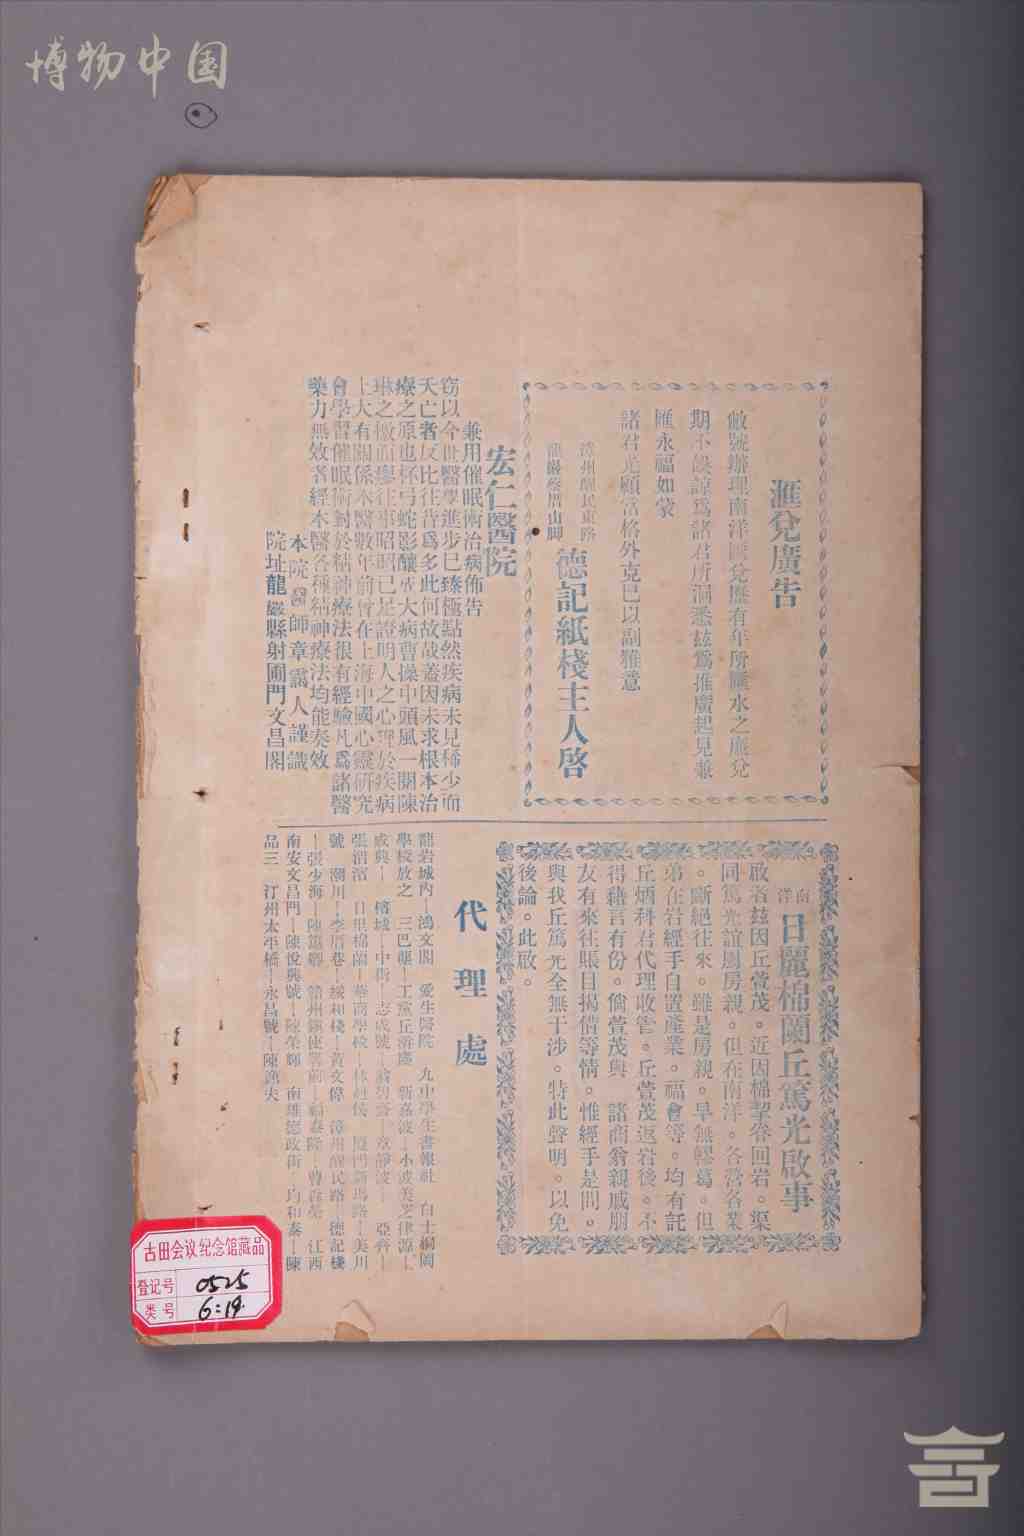 博物中国
滙兌廣告
敝號辦理南洋滙兌歷有年所匯水之廉兌
期不悞諒爲諸君所洞悉茲爲推廣起見兼
匯永福如蒙
諸君光顧當格外克己以副雅意
漳州醒民東路
龍巖蔡厝山脚
德記紙棧主人啓
宏仁醫院
兼用催眠術治病佈告
窃以今世醫學進步已臻極點然疾病未見稀少而
夭亡者反比往昔爲多此何故哉蓋因未求根本治
療之原也杯弓蛇影釀成大病曹操中頭風一閱陳
琳之檄而瘳往事昭昭已足證明人之心理於疾病
上大有關係本醫數年前曾在上海中國心靈研究
會學習催眠術對於精神療法很有經驗凡爲諸醫
藥力無效者經本醫各種精神療法均能奏效
本院醫師章靄人謹識
院址龍巖縣射圃門文昌閣
南洋日麗棉蘭丘篤光啟事
啟者茲因丘萱茂。近因棉挈眷回岩。渠
同篤光誼屬房親。但在南洋。各營各業
。斷絕往來。雖是房親。早無轇葛。但
弟在岩經手自置產業。福會等。均有託
丘炳科君代理收管。丘萱茂返岩後。不
得藉言有份。倘萱茂與 諸商翁親戚朋
友有來往賬目揭借等情。惟經手是問。
與我丘篤光全無干涉。特此聲明。以免
後論。此啟。
代理處
龍岩城內—鴻文閣 愛生醫院 九中學生書報社 白土桐岡
學校放之 三巴壟—工黨丘濟慶 新嘉波—小波美芝律源—
成興— 檳城—中街—志成號—
張渭濱 日里棉蘭—華商學校—林 厦門新瑪路—美川
號 潮川—李厝巷—綏和棧—黃文偉 漳州醒民路—德記棧
—張少海—陳 贛州鎮 福泰隆—曹 江西
南安文昌門—陳悅興號—陳榮輝 南雄德政街—均和泰—陳
品三 汀州太平橋—永昌號—陳 夫
古田会议纪念馆藏品
登记号 0525
类号 6:19